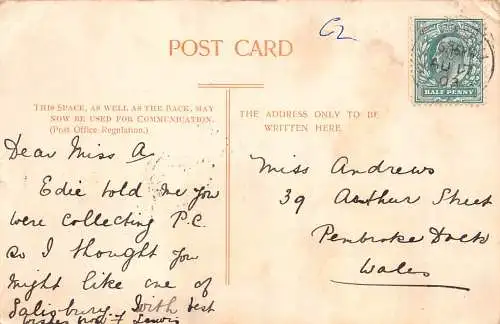 C2
POST CARD
HALF PENNY
THIS SPACE, AS WELL AS THE BACK, MAY
NOW BE USED FOR COMMUNICATION.
(Post Office Regulation.)
THE ADDRESS ONLY TO BE
WRITTEN HERE
Dear Miss A
Edie told me you
were collecting P.C.
so I thought you
might like one of
Salisbury. With best
wishes from F Lewis
Miss Andrews
39 Arthur Street
Pembroke Dock
Wales